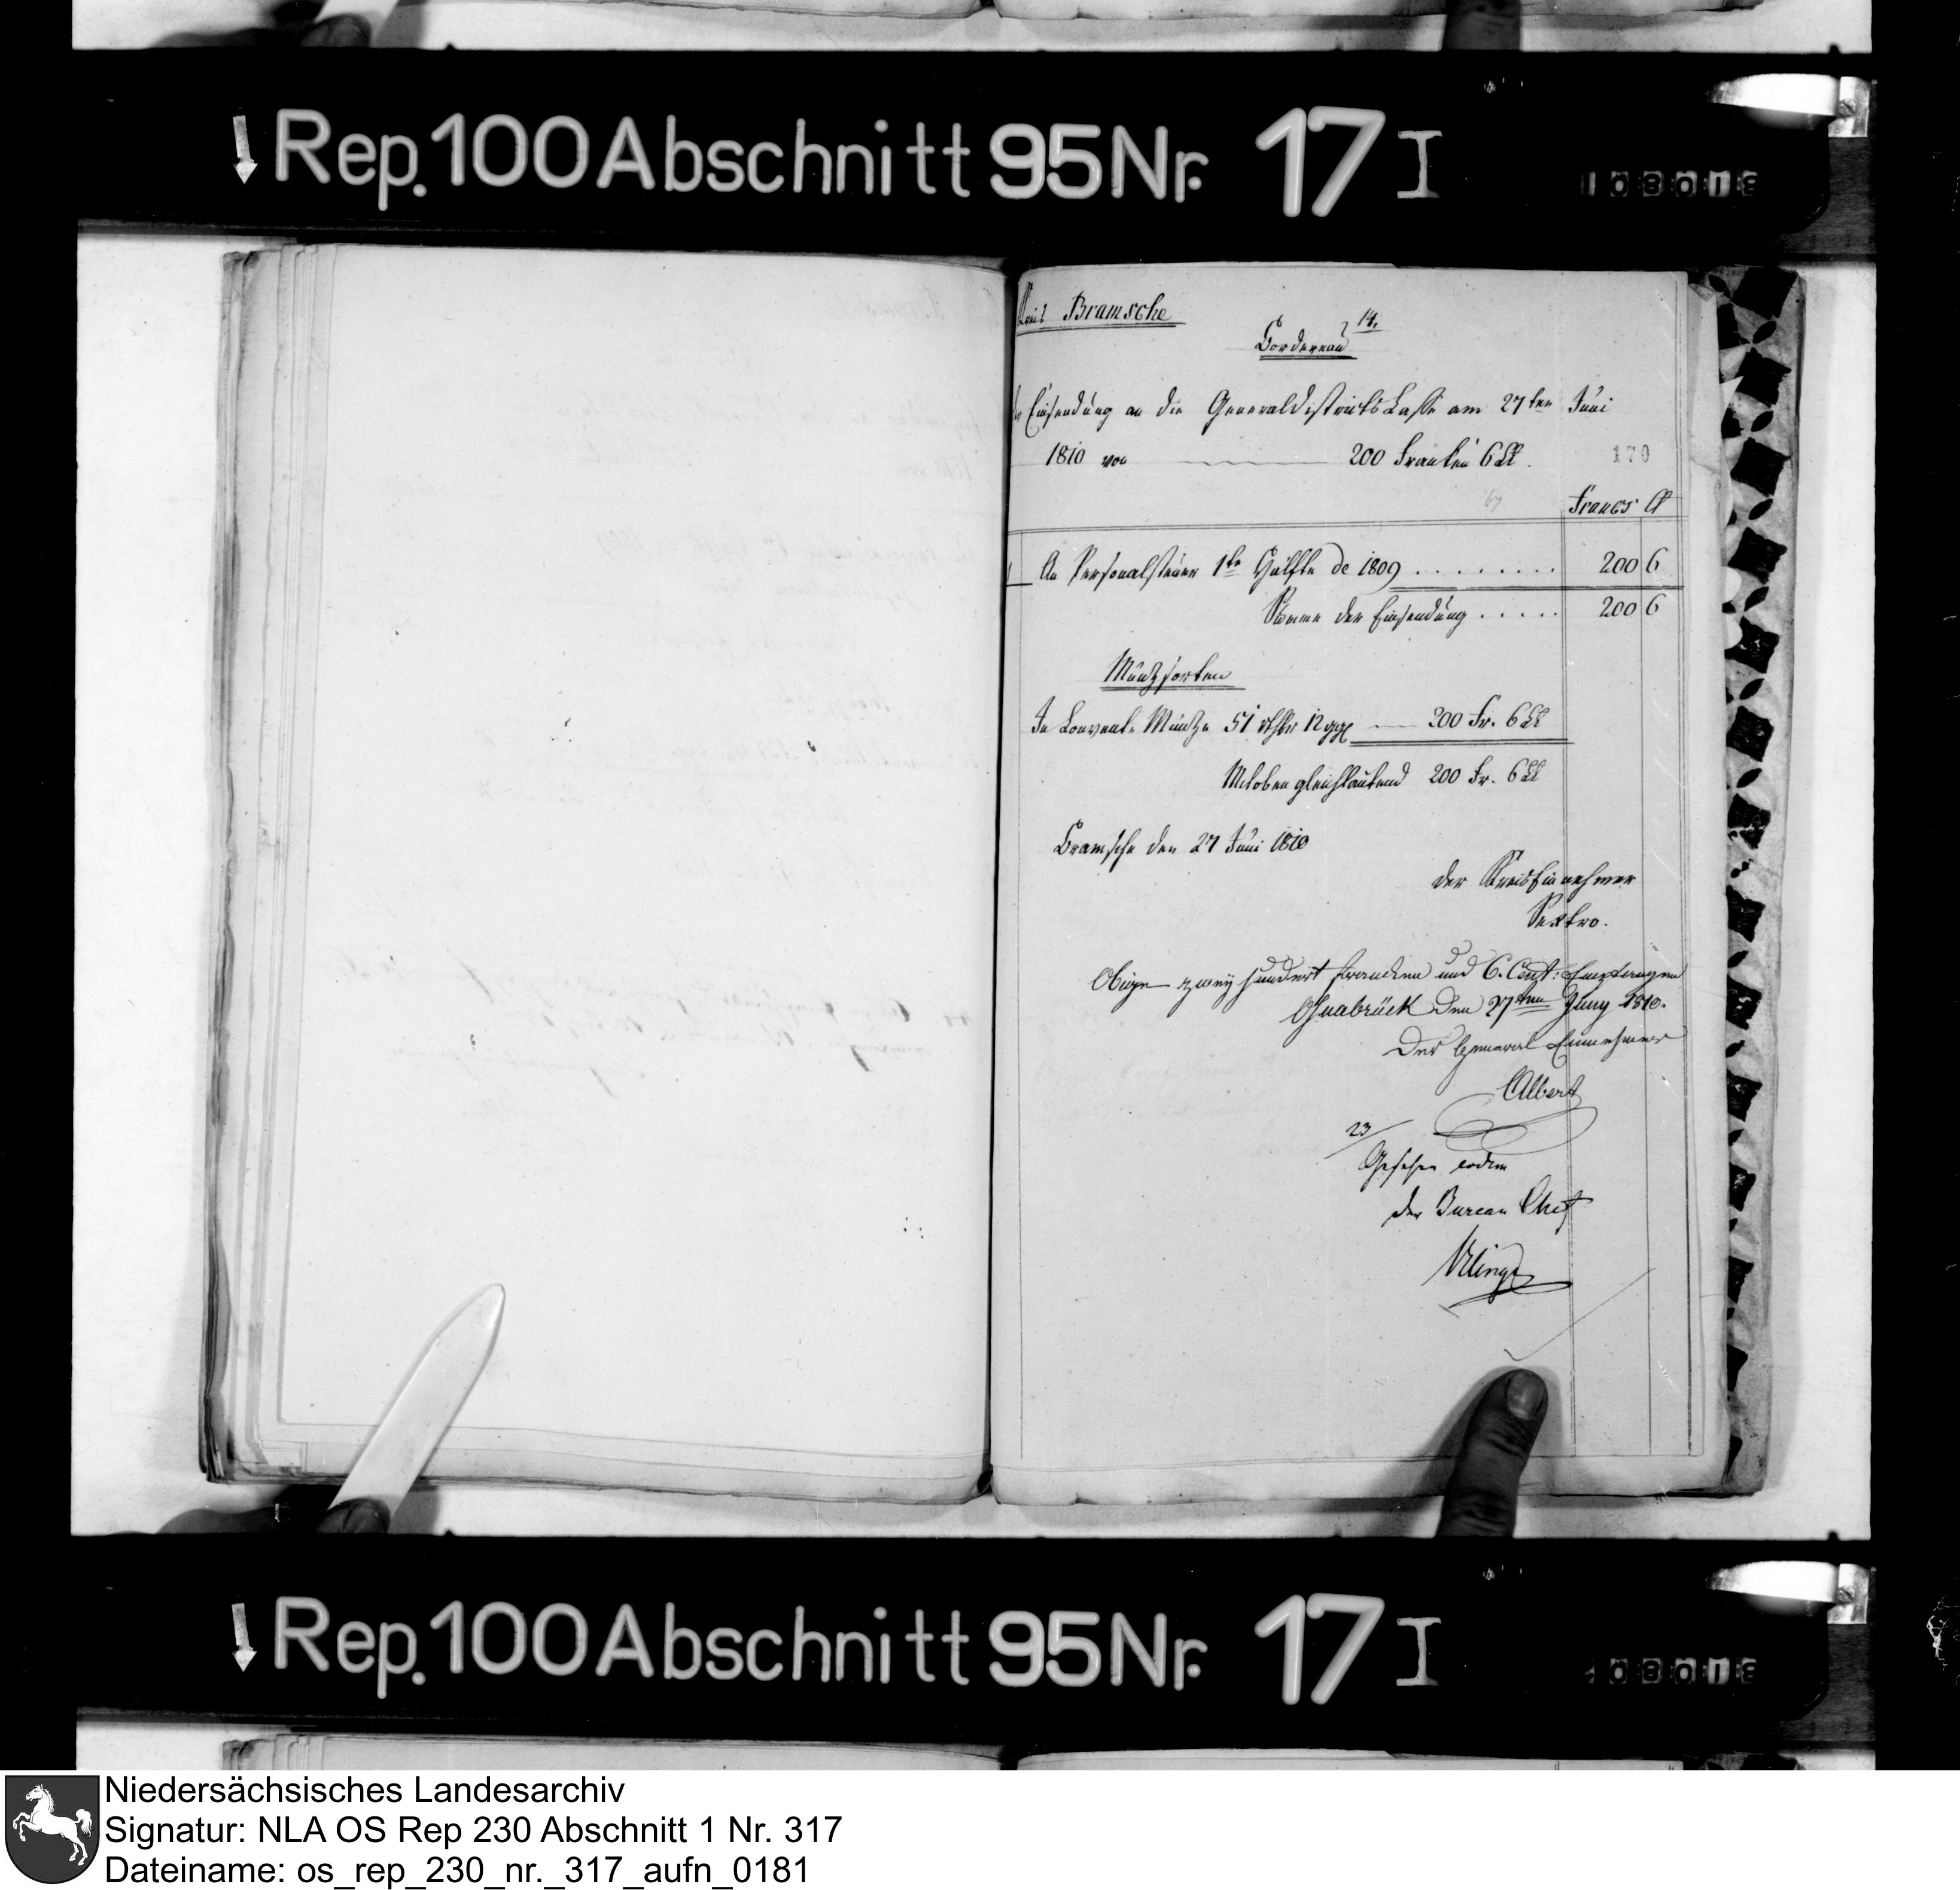 Rep. 100 Abschnitt 95 Nr. 17 I
Kreis Bramsche
14.
Bordereau
der Einsendung an die Generaldistricts Casse am 27ten Juni
1810 von 200 Franken 6 Ct.
170
67
Francs Ct
1 An Personalsteuer 1te Hälfte de 1809 . . . . . . . . . 200 6
Summe der Einsendung . . . . . 200 6
Münzsorten
In Convent. Münze 51 rthlr 12 ggr — 200 Fr. 6 Ct
Mitoben gleichlautend 200 Fr. 6 Ct
Bramsche den 27 Juni 1810
der Kreiseinnehmer
Sextro.
Obige zwey hundert francken und 6. Cent: Empfangen
Osnabrück den 27ten Juny 1810.
Der General Einnehmer
CAlbert
23
Gesehen eodem
der Bureau Chef
Rep. 100 Abschnitt 95 Nr. 17 I
Niedersächsisches Landesarchiv
Signatur: NLA OS Rep 230 Abschnitt 1 Nr. 317
Dateiname: os_rep_230_nr._317_aufn_0181